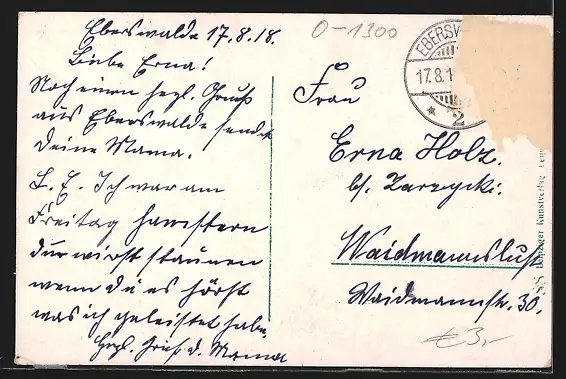 Eberswalde 17.8.18.
Liebe Erna!
Noch einen herzl. Gruß
aus Eberswalde sendet
Deine Mama.
L. E. Ich war am
Freitag hamstern
du wirst staunen
wenn du es hörst
was ich geleistet habe.
Herzl. Gruß d. Mama
0-1300
EBERSW
17.8.1
* 2
Frau
Erna Holz.
bh. Zarzycki.
Waidmannslust
Waidmannstr. 30.
€ 3,-
Kunstverlag